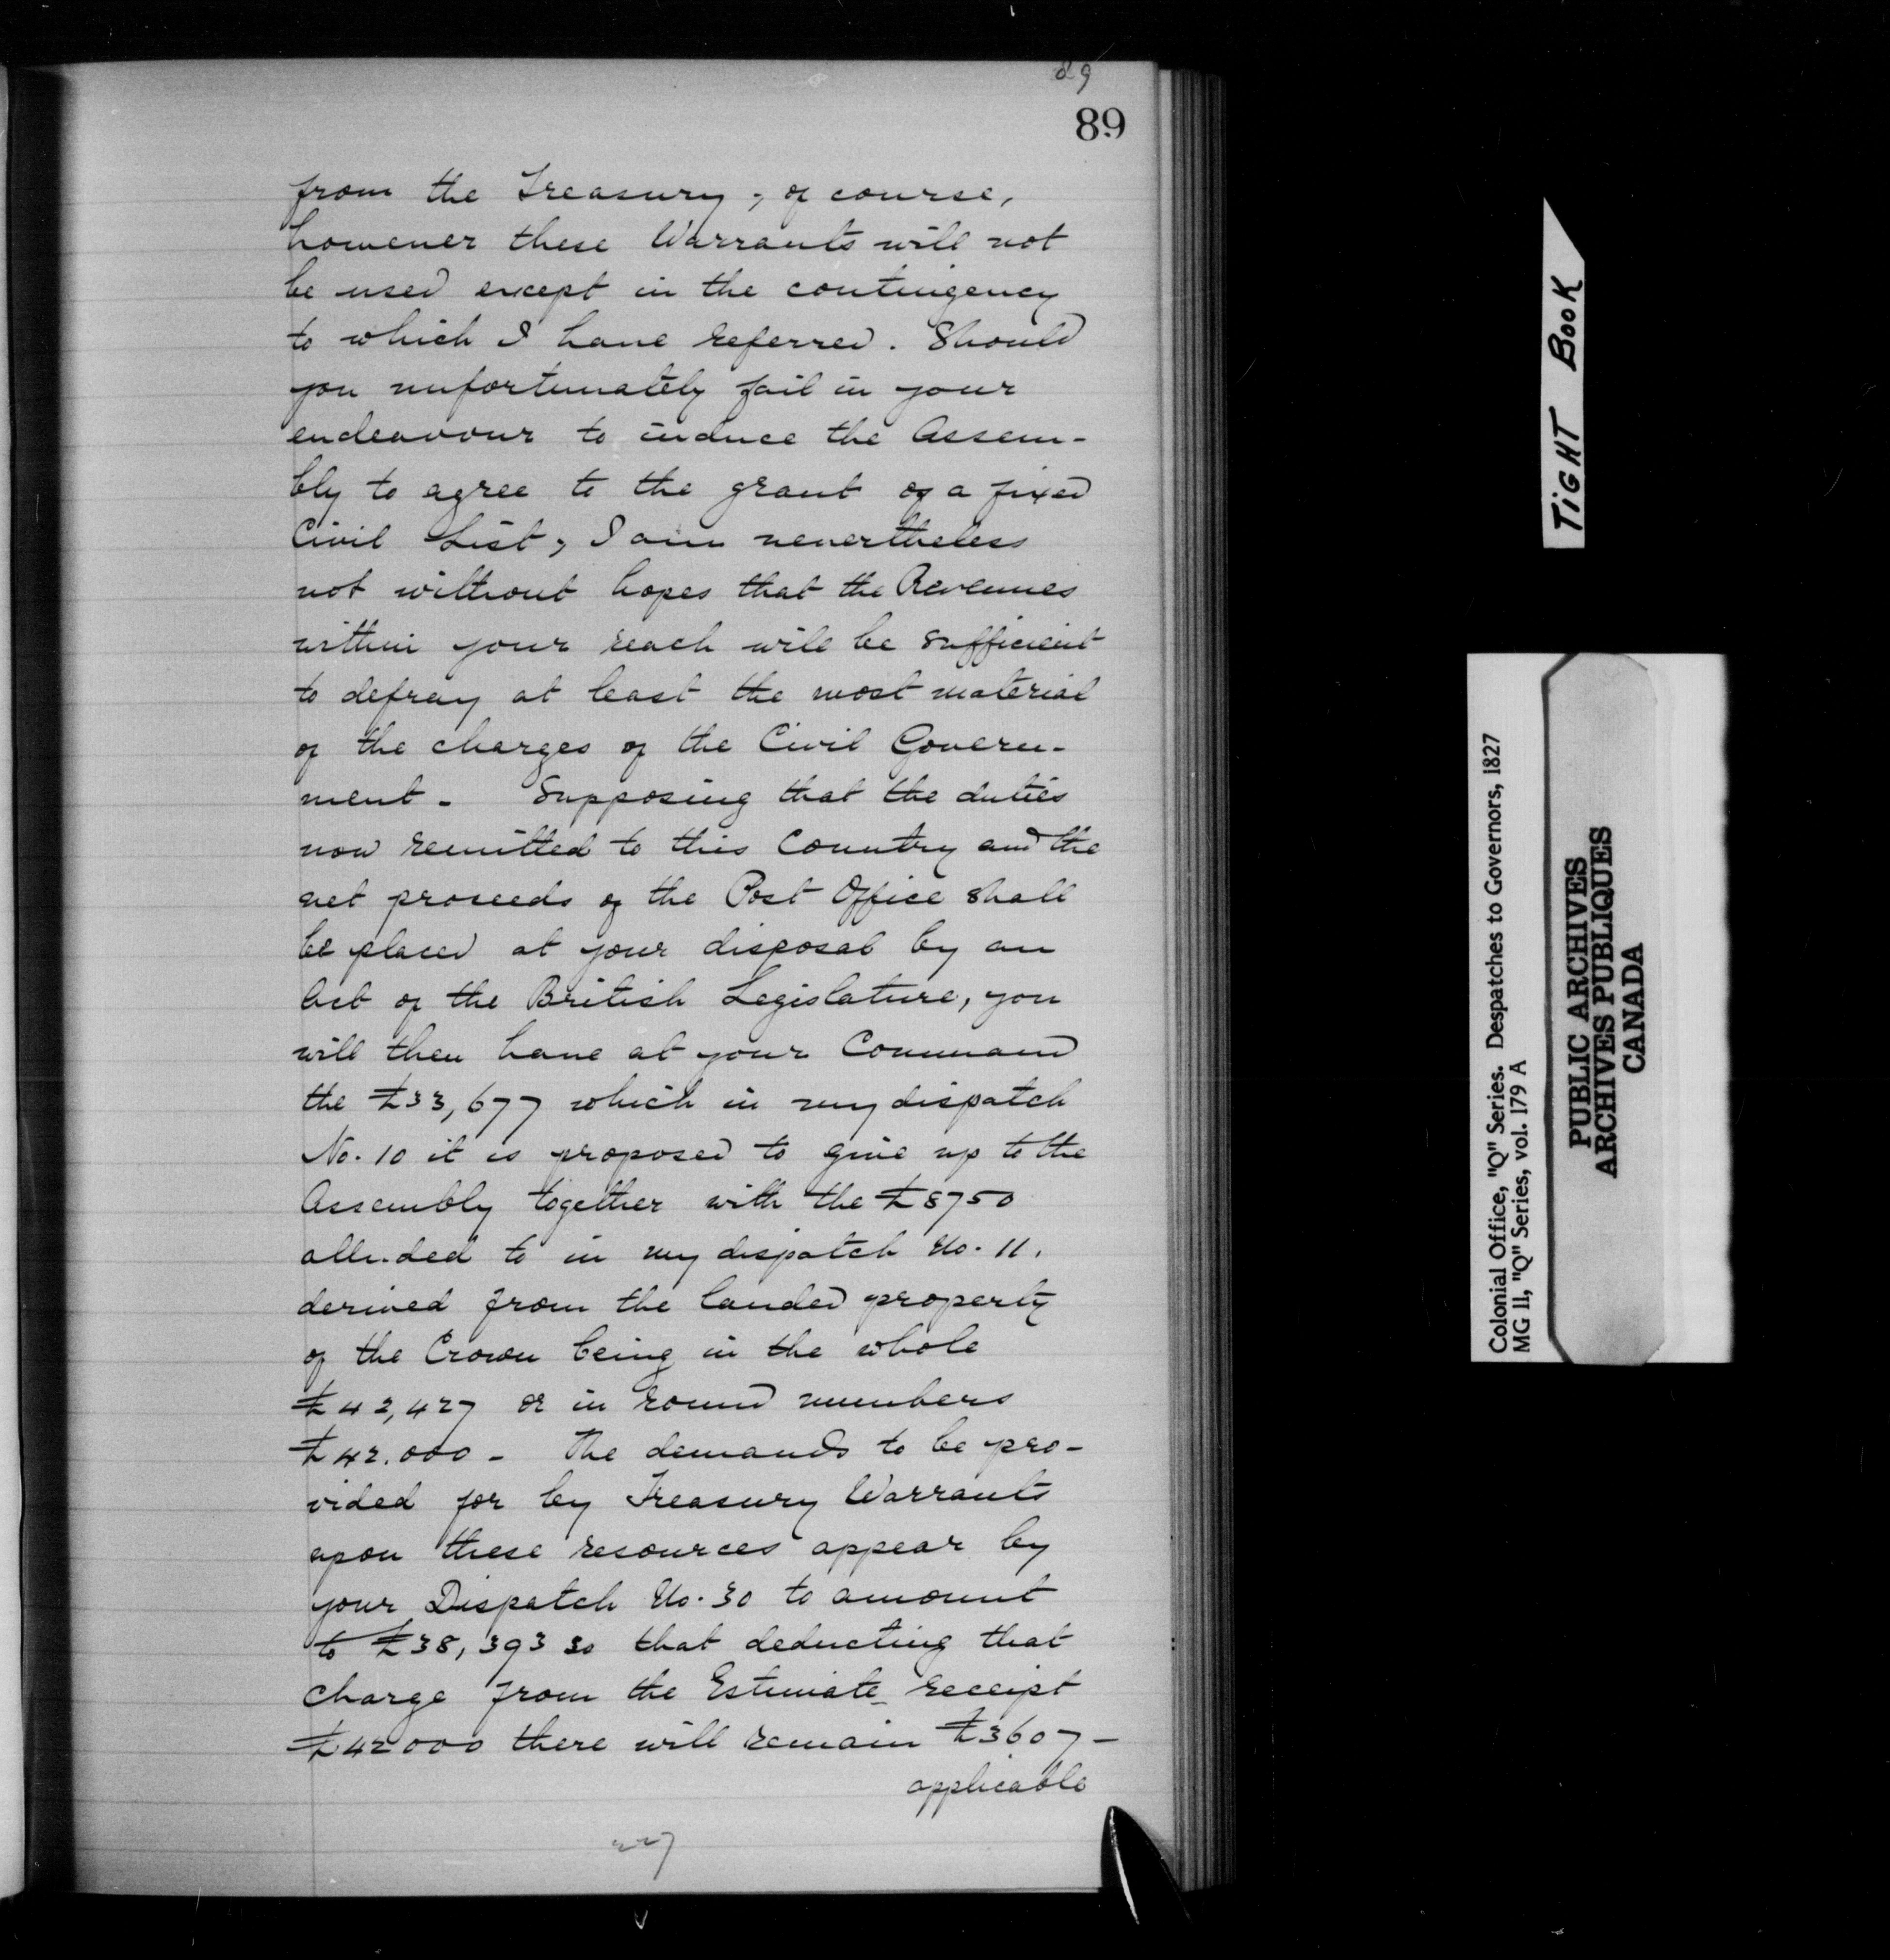 89
89
from the Treasury; of course,
however these Warrants will not
be used except in the contingency
to which I have referred. Should
you unfortunately fail in your
endeavour to induce the Assem-
bly to agree to the grant of a fixed
Civil List, I am nevertheless
not without hopes that the Revenues
within your reach will be sufficient
to defray at least the most material
of the charges of the Civil Govern-
ment - Supposing that the duties
now remitted to this Country and the
net proceeds of the Post Office shall
be placed at your disposal by an
Act of the British Legislature, you
will then have at your Command
the £33,677 which in my dispatch
No. 10 it is proposed to give up to the
Assembly together with the £8750
alluded to in my dispatch No. 11.
derived from the landed property
of the Crown being in the whole
£42,427 or in round numbers
£42.000 - The demands to be pro-
vided for by Treasury Warrants
upon these resources appear by
your Dispatch No. 30 to amount
to £38,393 so that deducting that
charge from the Estimate receipt
£42000 there will remain £3607 -
applicable
227
TiGHT BooK
Colonial Office, "Q" Series. Despatches to Governors, 1827
MG 11, "Q" Series, vol. 179 A
PUBLIC ARCHIVES
ARCHIVES PUBLIQUES
CANADA